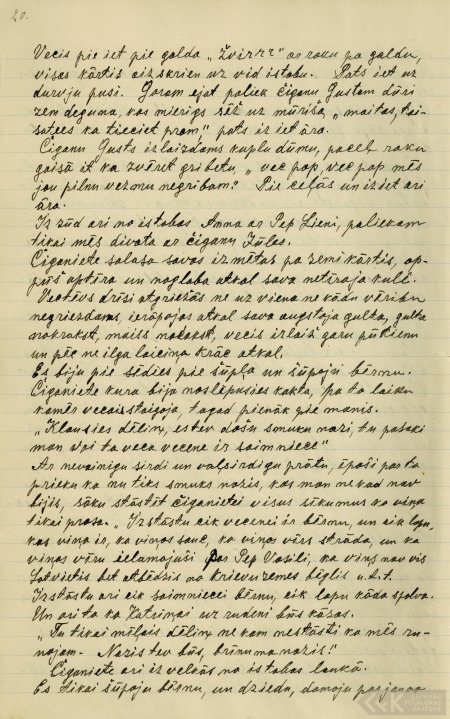 20.
Vecis pie iet pie galda „žvirrr" ar roku pa galdu,
visas kārtis aizskrien uz vid istabu. Pats iet uz
durvju pusi. Garam ejot paliek čigānu Gustam dūri
zem deguna, kas mierigs sēž uz mūriša, „maitas, tai-
satees ka tieciet prom" pats iz iet āra.
Čigānu Gusts izlaizdams kuplu dūmu, pacel roku
gaisā it kā zvērēt gribētu, „vec pap, vec pap mēs
jau pilnu vezmu negribam." Pie ceļās un iziet ari
āra.
Iz zūd ari no istabas Anna ar Pep Lieni, paliekam
tikai mēs divata ar čigānu Jūlas.
Čiganiete salasa savas izmētas pa zemi kārtis, ap-
pūš aptīra un noglaba atkal sava netīraja kulē.
Vectēvs drīsi atgriežās ne uz viena ne kādu vēribu
negriezdams, ierāpojas atkal sava augstaja gulta, gulta
nokrakst, maiss nočakst, vecis izlaiž garu pūtienu
un pēc ne ilga laiciņa krāc atkal.
Es biju pie sēdies pie šūpļa un šūpoju bērnu.
Čiganiete kura bija noslēpusies kakta, pa to laiku
kamēr vecais staigoja, tagad pienāk pie manis.
„Klausies dēliņ, es tev došu smuku nazi, tu pasaki
man vai ta veca vecene ir saimniece"
Ar nevainigu sirdi un vaļsirdigu prātu, īpaši par to
prieku ka nu tiks smuks nazis, kas man ne kad nav
bijis, sāku stāstit čiganietei visus sīkumus ko viņa
tikai prasa. „Izstāstu cik vecenei ir bērnu, un cik lopu,
kas viņa ir, ko viņas sauc, ko viņas vīrs strāda, un ka
viņas vīru iellamajuši par Pep Vasili, ka viņš nav vis
Latvietis bet atbēdzis no krievu zemes bēglis u.t.t.
Izstāstu ari cik saimniecei bērnu, cik lopu kāda spalva.
Un ari to ka Katriņai uz rudeni būs kāzas.
„Tu tikai mīļais dēliņ ne kam nestāsti ko mēs ru-
nojam– Nazis tev būs, brīnuma nazis!"
Čiganiete ari iz velkās no istabas laukā.
Es tikai šūpoju bērnu, un dziedu, domoju par jauno
LATVIEŠU FOLKLORAS KRĀTUVE